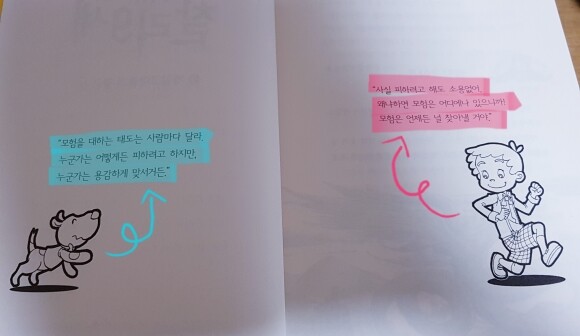 "모험을 대하는 태도는 사람마다 달라,
누군가는 어떻게든 피하려고 하지만,
누군가는 용감하게 맞서거든."
"사실 피하려고 해도 소용없어.
왜냐하면 모험은 어디에나 있으니까!
모험은 언제든 널 찾아낼 거야."